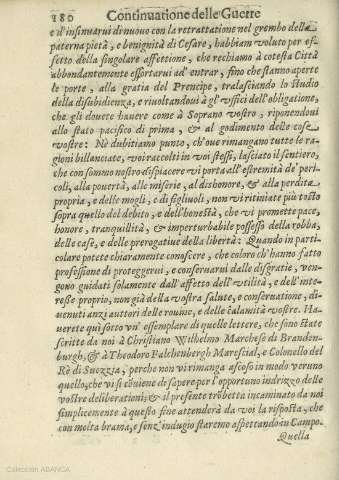 180 Continuatione delle Guerre
e d'insinuarui di nuouo con la retrattatione nel grembo della
paterna pietà, e benignità di Cesare, habbiam voluto per ef-
fetto della singolare affettione, che rechiamo à cotesta Città
abbondantemente essortarui ad' entrar, fino che stanno aperte
le porte, alla gratia del Prencipe, tralasciando lo studio
della disubidienza, e riuoltandoui à gl'vffici dell'obligatione,
che gli douete hauere come à Soprano vostro, riponendoui
allo stato pacifico di prima, & al godimento delle cose
vostre: Nè dubitiamo punto, ch'oue rimangano tutte le ra-
gioni billanciate, voi raccolti in voi stessi, lasciato il sentiero,
che con sommo nostro dispiacere vi porta all'estremità de' peri-
coli, alla pouertà, alle miserie, al dishonore, & alla perdita
propria, e delle mogli, e di figliuoli, non vi ritiniate più tosto
sopra quello del debito, e dell'honestà, che vi promette pace,
honore, tranquilità, & imperturbabile possesso della robba,
delle case, e delle prerogatiue della libertà: Quando in parti-
colare potete chiaramente conoscere, che coloro ch'hanno fatto
professione di proteggerui, e conseruarui dalle disgratie, ven-
gono guidati solamente dall'affetto dell'vtilità, e dell'inte-
resse proprio, non già della vostra salute, e conseruatione, di-
uenuti anzi auttori delle rouine, e delle calamità vostre. Ha-
uerete quì sotto vn' essemplare di quelle lettere, che sono state
scritte da noi à Christiano Wilhelmo Marchese di Branden-
burgh, & à Theodoro Falchenbergh Marescial, e Colonello del
Rè di Suezzia, perche non vi rimanga ascoso in modo veruno
quello, che vi si cōuiene di sapere per l'opportuno indrizzo delle
vostre deliberationi; & il presente trōbetta incaminato da noi
simplicemente à questo fine attenderà da voi la risposta, che
con molta brama, e senz'indugio staremo aspettando in Campo.
Quella
Colección ABANCA